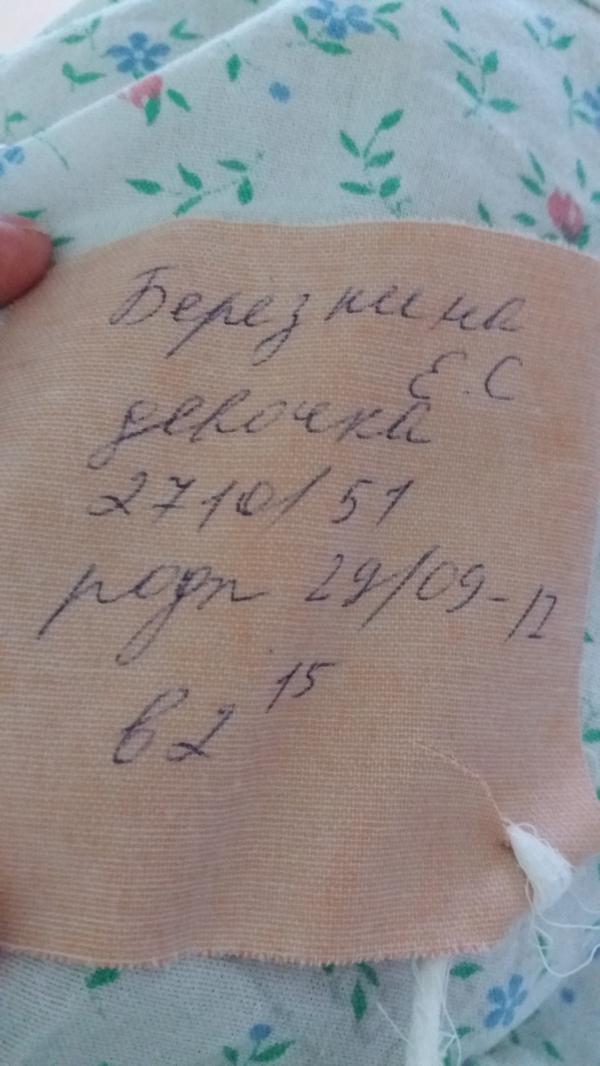 Березнина
Е.С
девочка
2710/51
родл 29/09-12
в 2 15